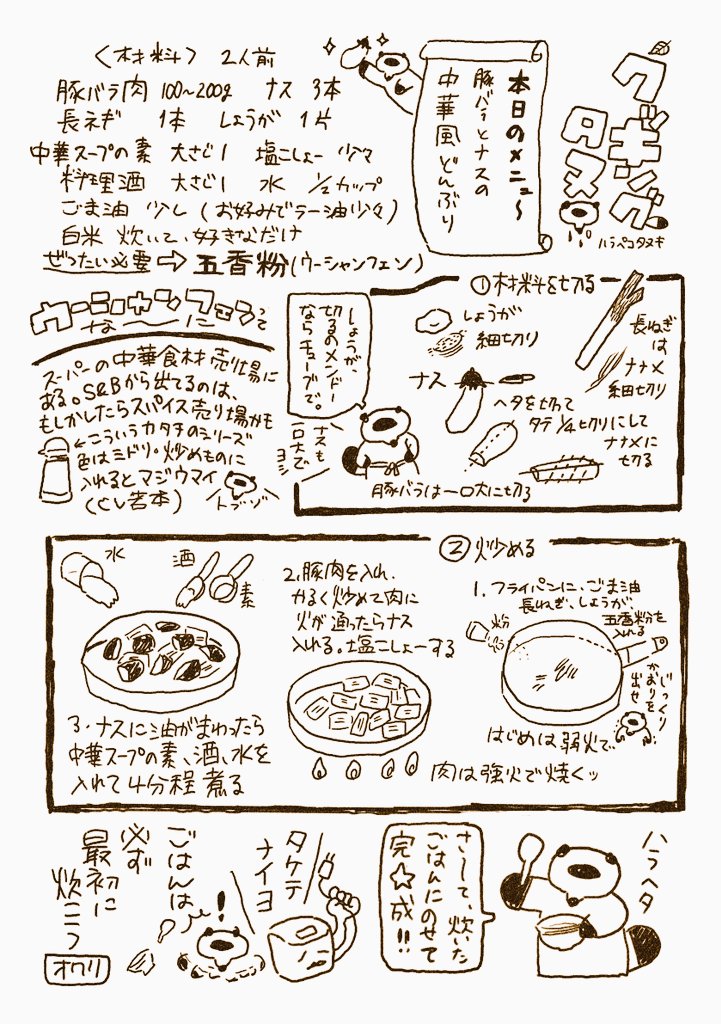 クッキング
タヌキ
ハラペコタヌキ
本日のメニュ〜
豚バラとナスの
中華風どんぶり
〈材料〉 2人前
豚バラ肉 100〜200g ナス 3本
長ネギ 1本 しょうが 1片
中華スープの素 大さじ1 塩こしょー 少々
料理酒 大さじ1 水 1/2カップ
ごま油 少し (お好みでラー油少々)
白米 炊いて、好きなだけ
ぜったい必要⇨五香粉(ウーシャンフェン)
①材料を切る
長ねぎ
は
ナナメ
細切り
しょうが
細切り
ナス→
ヘタを切って
タテ1/4切りにして
ナナメに
切る
豚バラは一口大に切る
しょうが、
切るのメンドー
ならチューブで。
ナスも
一口大で
ヨシ
ウーシャンフェンって
な〜に
スーパーの中華食材売り場に
ある。S&Bから出てるのは、
もしかしたらスパイス売り場かも
←こういうカタチのシリーズ
色はミドリ・炒めものに
入れるとマジウマイ
(CV若本)
トブゾ
②炒める
1. フライパンに、ごま油
長ねぎ、しょうが、
五香粉を
入れる
粉
じっくり
かおりを
出せ
はじめは弱火で、
肉は強火で焼くッ
2.豚肉を入れ、
かるく炒めて肉に
火が通ったらナス
入れる。塩こしょーする
水
酒
素
3. ナスに油がまわったら
中華スープの素、酒、水を
入れて4分程煮る
ハラヘタ
さ〜して、炊いた
ごはんにのせて
完☆成!!
タケテ
ナイヨ
!
ごはんは
必ず
最初に
炊こう
オワリ